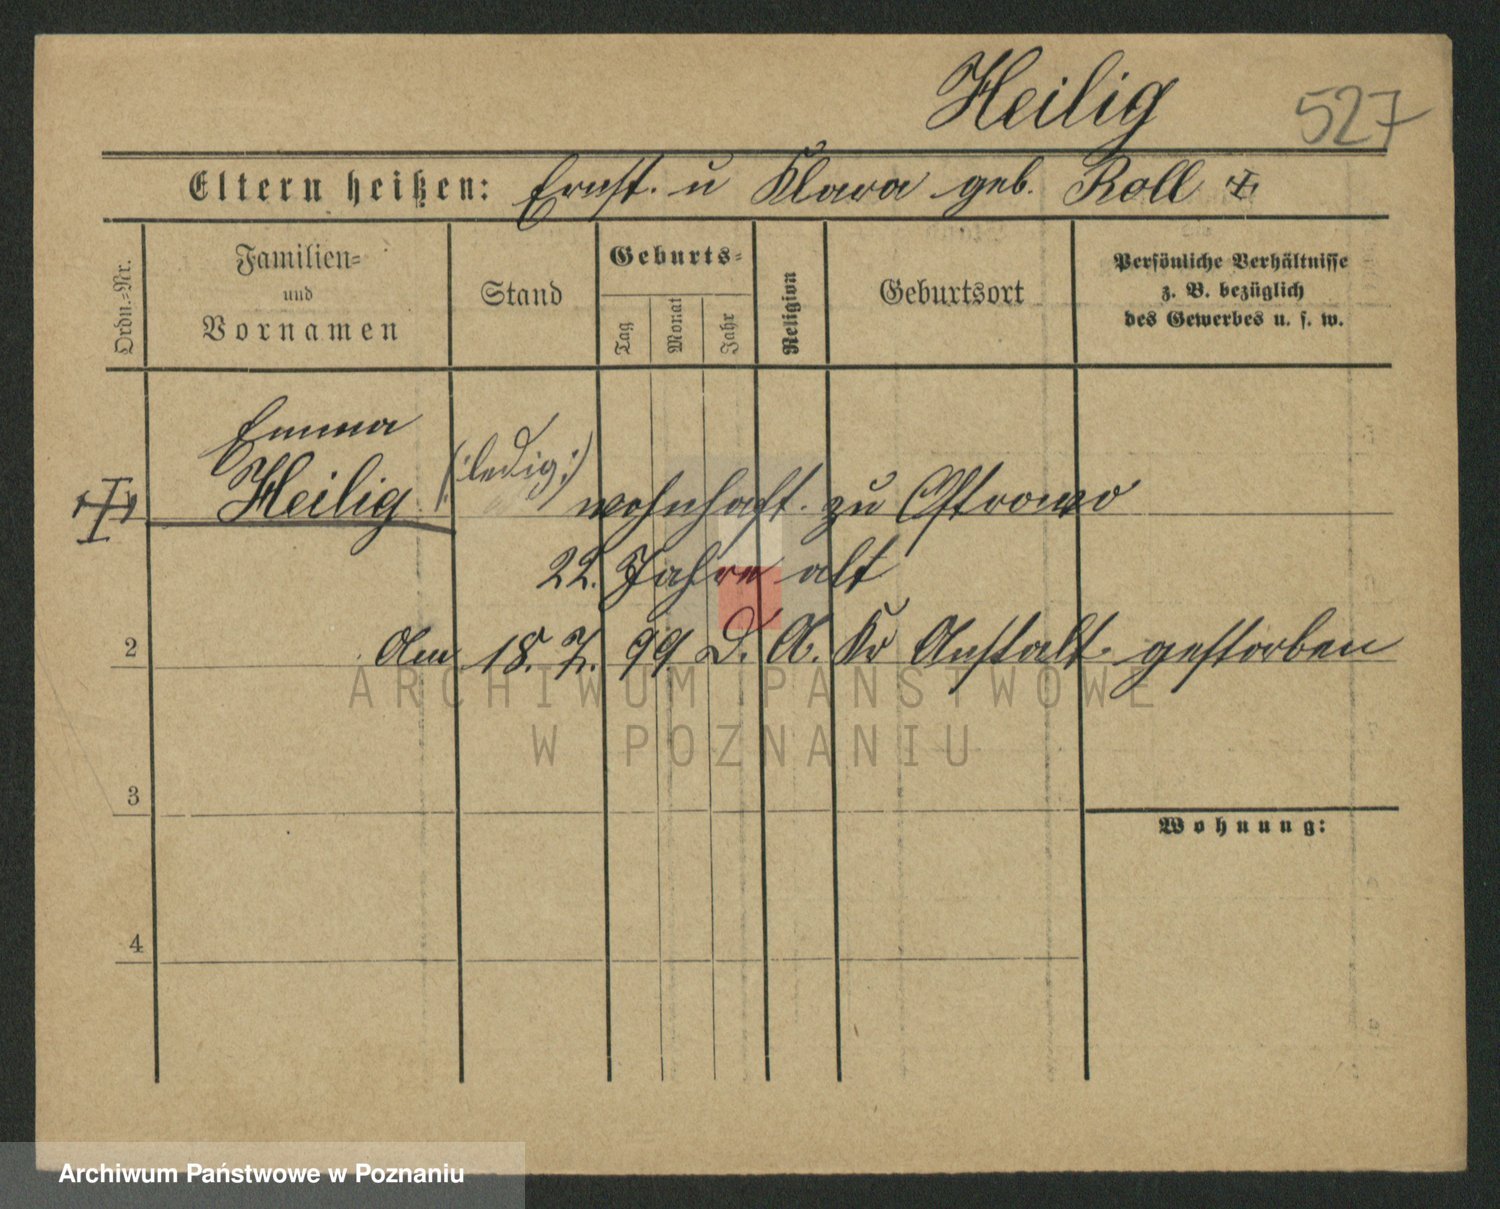 Heilig 527
Eltern heißen: Ernst. u Klara geb. Roll
Ordn.=Nr.
Familien=
und
Vornamen
Stand
Geburts=
Tag
Monat
Jahr
Religion
Geburtsort
Persönliche Verhältnisse
z. B. bezüglich
des Gewerbes u. s. w.
Emma
Heilig (:ledig:)
wohnhaft. zu Ostrowo
22. Jahre alt
2 Am 18. 7. 99 D. A. Kr Anstalt. gestorben
ARCHIWUM PAŃSTWOWE
W POZNANIU
3
Wohnung:
4
Archiwum Państwowe w Poznaniu